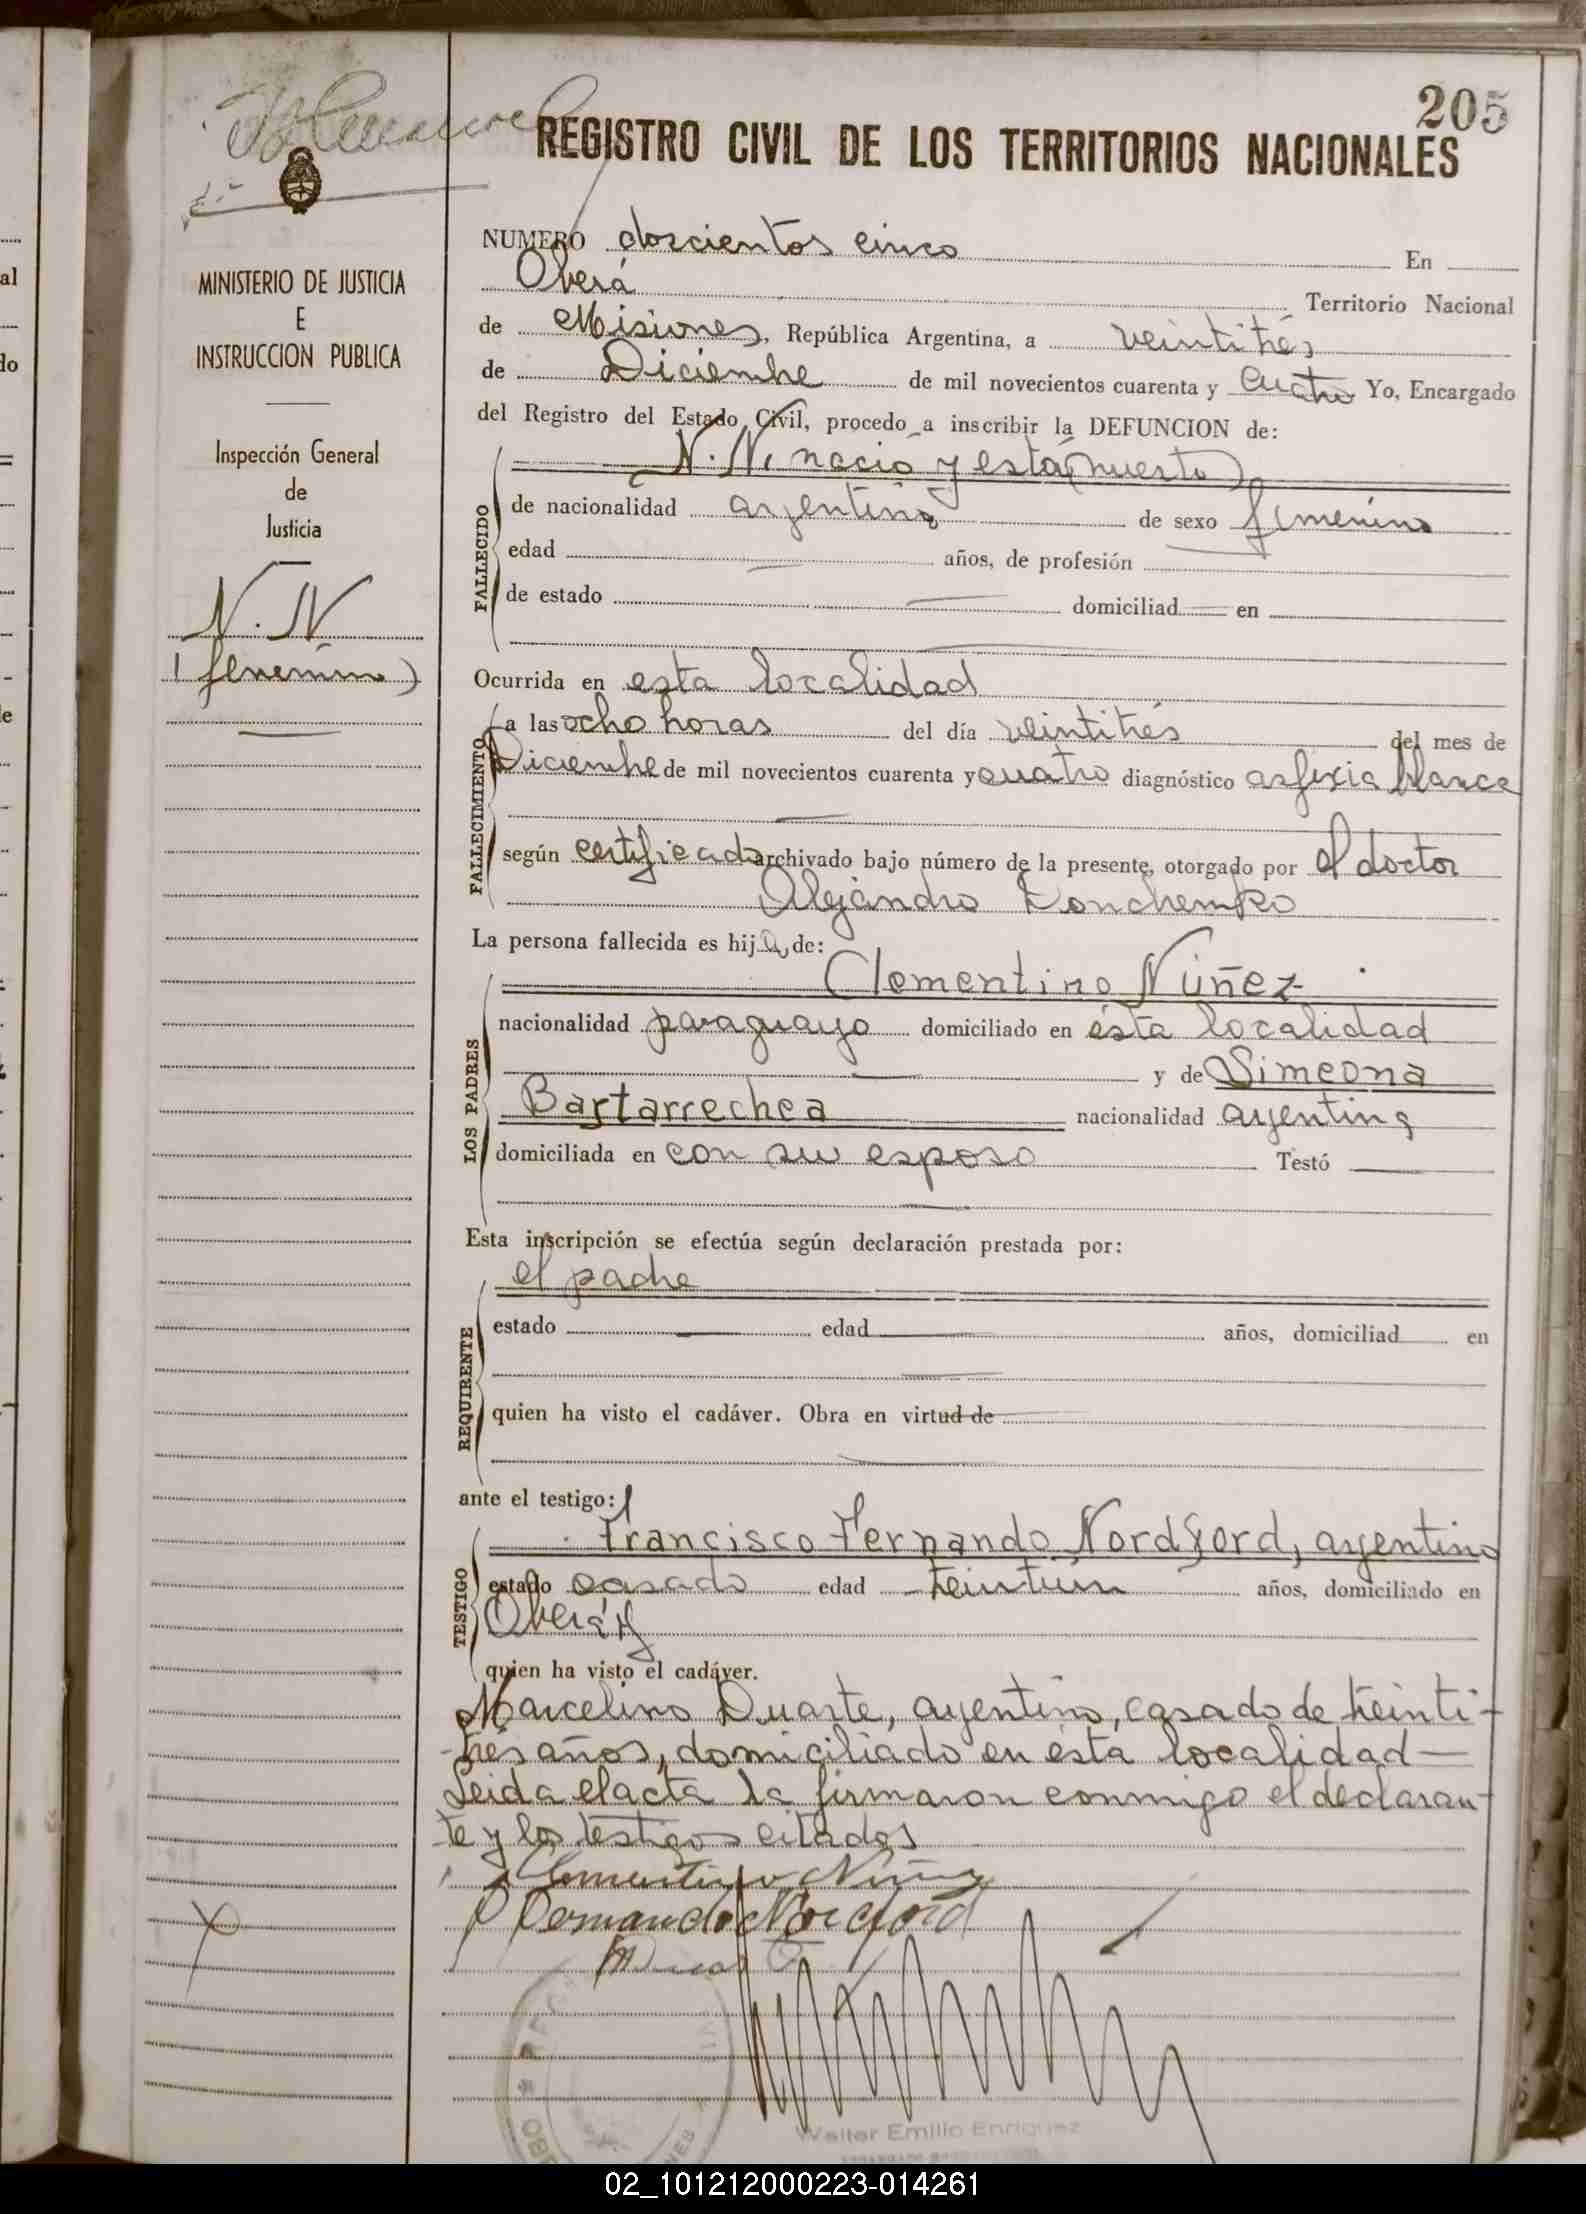 205
REGISTRO CIVIL DE LOS TERRITORIOS NACIONALES
MINISTERIO DE JUSTICIA
E
INSTRUCCION PUBLICA
Inspección General
de
Justicia
N. N
(femenino)
NUMERO doscientos cinco En
Oberá Territorio Nacional
de Misiones, República Argentina, a veintitrés
de Diciembre de mil novecientos cuarenta y cuatro Yo, Encargado
del Registro del Estado Civil, procedo a inscribir la DEFUNCION de:
N. N. nació y está (muerto)
FALLECIDO
de nacionalidad argentina de sexo femenino
edad años, de profesión
de estado domiciliad en
Ocurrida en esta localidad
FALLECIMIENTO
a las ocho horas del día veintitrés del mes de
Diciembre de mil novecientos cuarenta y cuatro diagnóstico asfixia blanca
según certificado archivado bajo número de la presente, otorgado por el doctor
Alejandro
La persona fallecida es hija de:
LOS PADRES
Clementino Núñez
nacionalidad paraguayo domiciliado en ésta localidad
y de Simeona
Bartarrechea nacionalidad argentina
domiciliada en con su esposo Testó
Esta inscripción se efectúa según declaración prestada por:
REQUIRENTE
el padre
estado edad años, domiciliad en
quien ha visto el cadáver. Obra en virtud de
ante el testigo:
TESTIGO
Francisco Fernando Nordfjord, argentino
estado casado edad treintiún años, domiciliado en
Oberá y
quien ha visto el cadáver.
Marcelino Duarte, argentino, casado de treinti-
trés años, domiciliado en ésta localidad
Leida el acta la firmaron conmigo el declaran-
te y los testigos citados
Clementino Núñez
Walter Emilio Enriquez
02_101212000223-014261